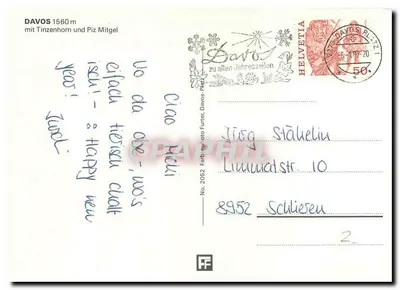 DAVOS 1560 m
mit Tinzenhorn und Piz Mitgel
Ciao
Vo da obe - wo's
eifach tierisch chalt
isch! - a Happy new
year!
No. 2052 Farbphoto Furter, Davos Platz
Davos
zu allen Jahreszeiten
DAVOS PLATZ 1
HELVETIA
50
Jürg Stähelin
Limmatstr. 10
8952 Schlieren
2